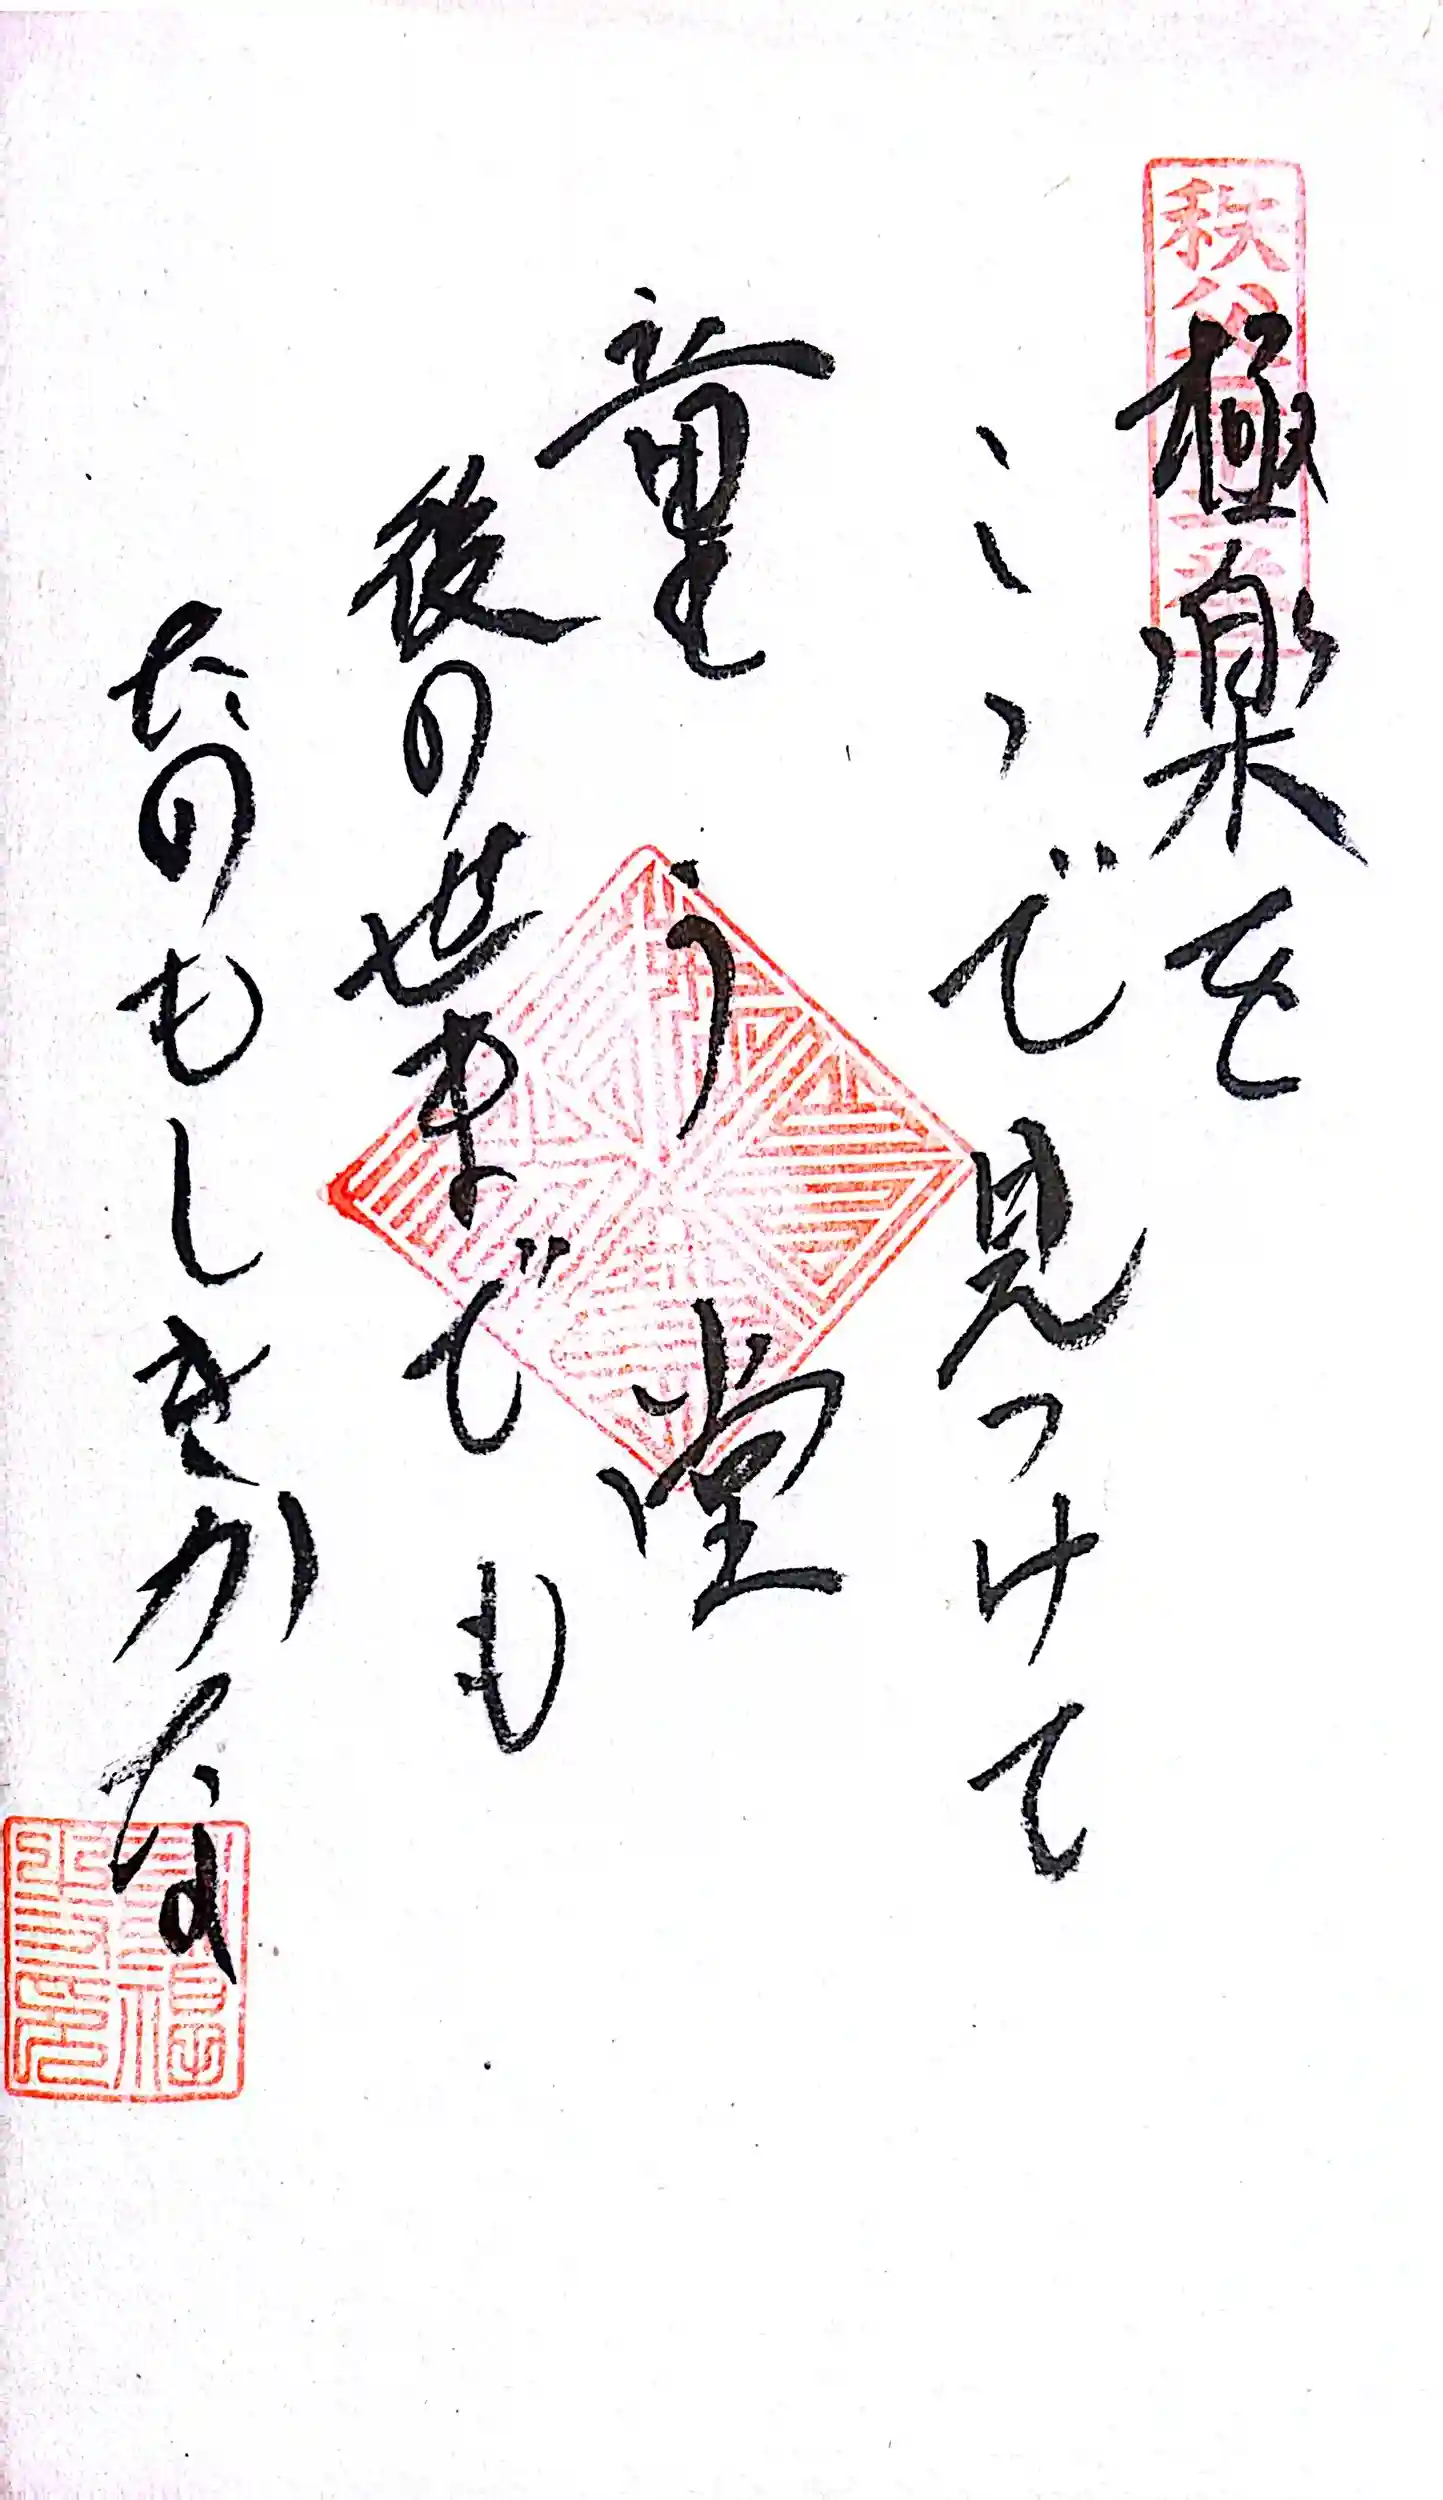 秩父廿二番
極楽を
こゝで見つけて
童う堂
後のせまでも
たのもしきかな